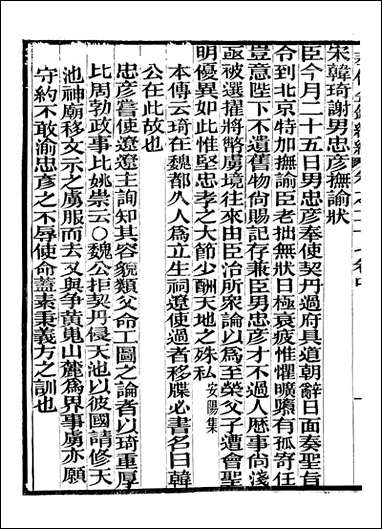 宋韓琦謝男忠彥撫諭狀
臣今月二十五日男忠彥奉使契丹過府具道朝辭日面奏聖旨
令到北京特加撫諭臣老拙無狀日極衰疲惟懼曠隳有孤寄任
豈意陛下不遺舊物尚賜記存兼臣男忠彥才不過人歷事尙淺
亟被選擢將幣虜境往來由臣治所眾論以為至榮父子遭會聖
明優異如此惟堅忠孝之大節少酬天地之殊私安陽集
本傳云琦在魏都久人為立生祠遼使過者移牒必書名曰韓
公在此故也
忠彥嘗使遼遼主詢知其容貌類父命工圖之論者以琦重厚
比周勃政事比姚崇云○魏公拒契丹侵天池以彼國請修天
池神廟移文示之虜服而去又與爭黃嵬山麓為界事虜亦願
守約不敢渝忠彥之不辱使命蓋素秉義方之訓也